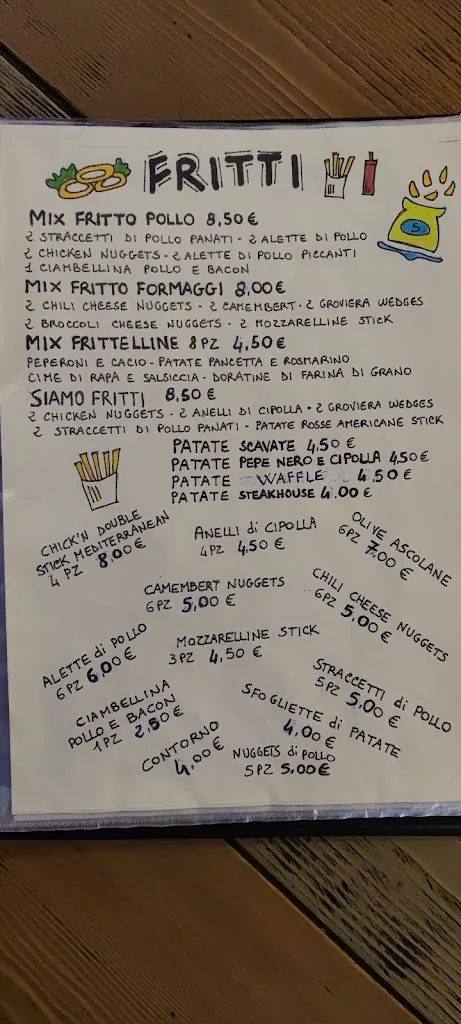 FRITTI
MIX FRITTO POLLO 8,50 €
2 STRACCETTI DI POLLO PANATI - 2 ALETTE DI POLLO
2 CHICKEN NUGGETS - 2 ALETTE DI POLLO PICCANTI
1 CIAMBELLINA POLLO E BACON
MIX FRITTO FORMAGGI 8,00€
2 CHILI CHEESE NUGGETS - 2 CAMEMBERT - 2 GROVIERA WEDGES
2 BROCCOLI CHEESE NUGGETS - 2 MOZZARELLINE STICK
MIX FRITTELLINE 8PZ 4,50€
PEPERONI E CACIO - PATATE PANCETTA E ROSMARINO
CIME DI RAPA E SALSICCIA - DORATINE DI FARINA DI GRANO
SIAMO FRITTI 8,50€
2 CHICKEN NUGGETS - 2 ANELLI DI CIPOLLA - 2 GROVIERA WEDGES
2 STRACCETTI DI POLLO PANATI - PATATE ROSSE AMERICANE STICK
PATATE SCAVATE 4,50€
PATATE PEPE NERO E CIPOLLA 4,50€
PATATE WAFFLE 4,50€
PATATE STEAKHOUSE 4,00€
S
CHICK'N DOUBLE
STICK MEDITERRANEAN
4 PZ 8,00€
ANELLI di CIPOLLA
4PZ 4,50€
OLIVE ASCOLANE
6PZ 7,00€
CAMEMBERT NUGGETS
6PZ 5,00€
CHILI CHEESE NUGGETS
6PZ 5,00€
ALETTE di POLLO
6PZ 6,00€
MOZZARELLINE STICK
3PZ 4,50€
STRACCETTI di POLLO
5PZ 5,00€
CIAMBELLINA
POLLO E BACON
1PZ 2,50€
SFOGLIETTE di PATATE
4,00€
CONTORNO
4,00€
NUGGETS di POLLO
5PZ 5,00€